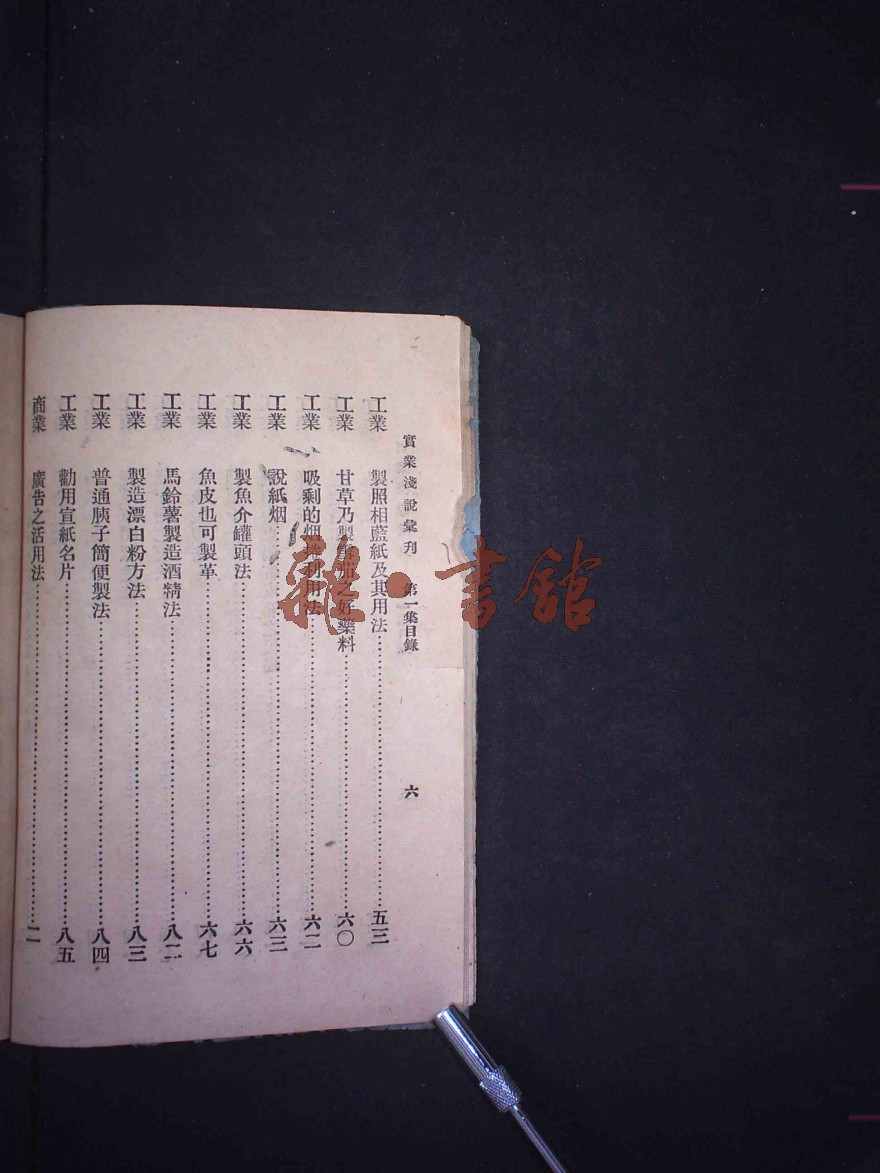 實業淺說彙刊 第一集目錄 六
工業 製照相藍紙及其用法 五三
工業 甘草乃製雪茄之好藥料 六〇
工業 吸剩的烟捲利用法 六二
工業 說紙烟 六三
工業 製魚介罐頭法 六六
工業 魚皮也可製革 六七
工業 馬鈴薯製造酒精法 八二
工業 製造漂白粉方法 八三
工業 普通胰子簡便製法 八四
工業 勸用宣紙名片 八五
商業 廣告之活用法 二
雜·書館